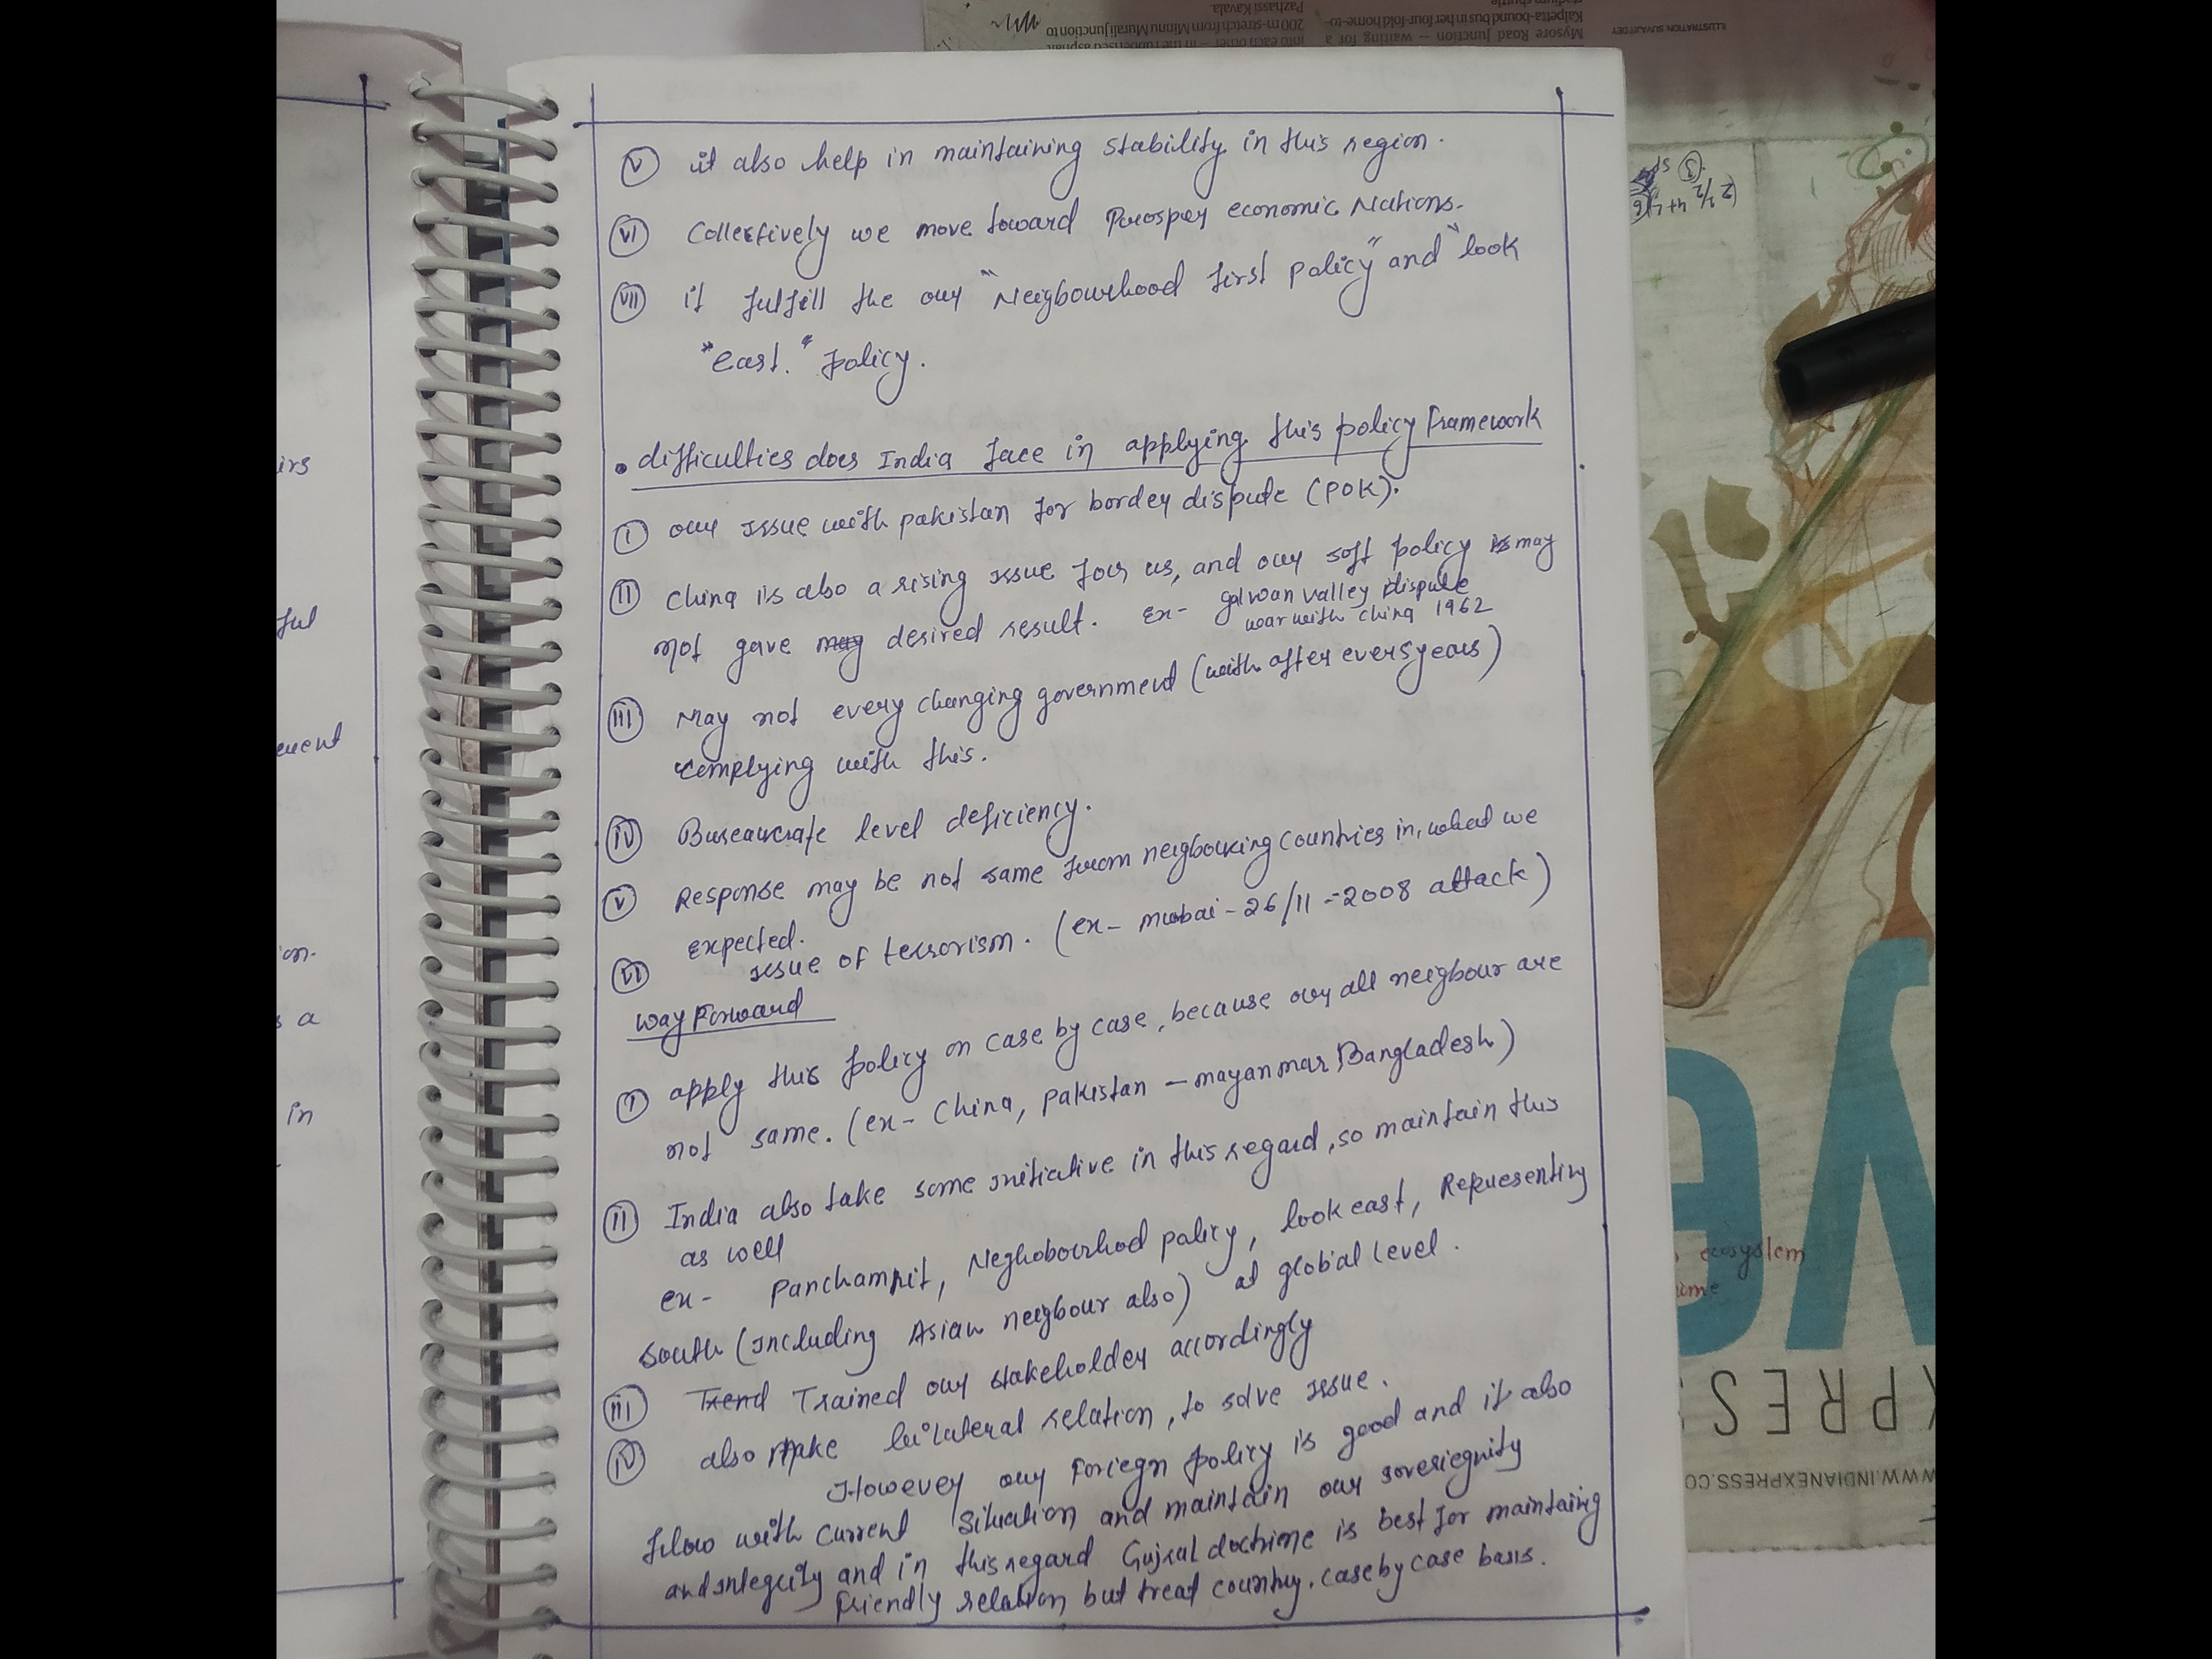 ILLUSTRATION SUVAJIT DEY
Mysore Road junction — waiting for a
Kalpetta-bound bus in her four-fold home-to-
into each other — in the rubberised asphalt
200-m-stretch from Minnu Murali junction to
Pazhassi Kavala
irs
ful
ement
on.
s a
in
(v) it also help in maintaining stability in this region.
(vi) Collectively we move toward Prosper economic Nations.
(vii) it fulfill the our "Neigbourhood first policy" and "look
"east." policy.
• difficulties does India face in applying this policy framework
(i) our issue with pakistan for border dispute (POK).
(ii) China is also a rising issue for us, and our soft policy is may
not gave may desired result. ex- galwan valley dispute
war with china 1962
(iii) May not every changing government (with after every 5 years)
complying with this.
(iv) Bureaucrate level deficiency.
(v) Response may be not same from neigbouring countries in, what we
expected.
(vi) issue of terrorism. (ex- mubai - 26/11 - 2008 attack)
way Forward
(i) apply this policy on case by case, because our all neigbour are
not same. (ex- China, pakistan — mayanmar, Bangladesh)
(ii) India also take some initiative in this regard, so maintain this
as well
ex- Panchamrit, Neghobourhod policy, look east, Representing
south (including Asian neigbour also) at global level.
(iii) Trend Trained our stakeholder accordingly
(iv) also make bilateral relation, to solve issue.
However our Foriegn policy is good and it also
flow with current situation and maintain our soveriegnity
and integrity and in this regard Gujral doctrine is best for maintaing
friendly relation but treat country. case by case basis.
ecosystem
VE
XPRESS
WWW.INDIANEXPRESS.CO